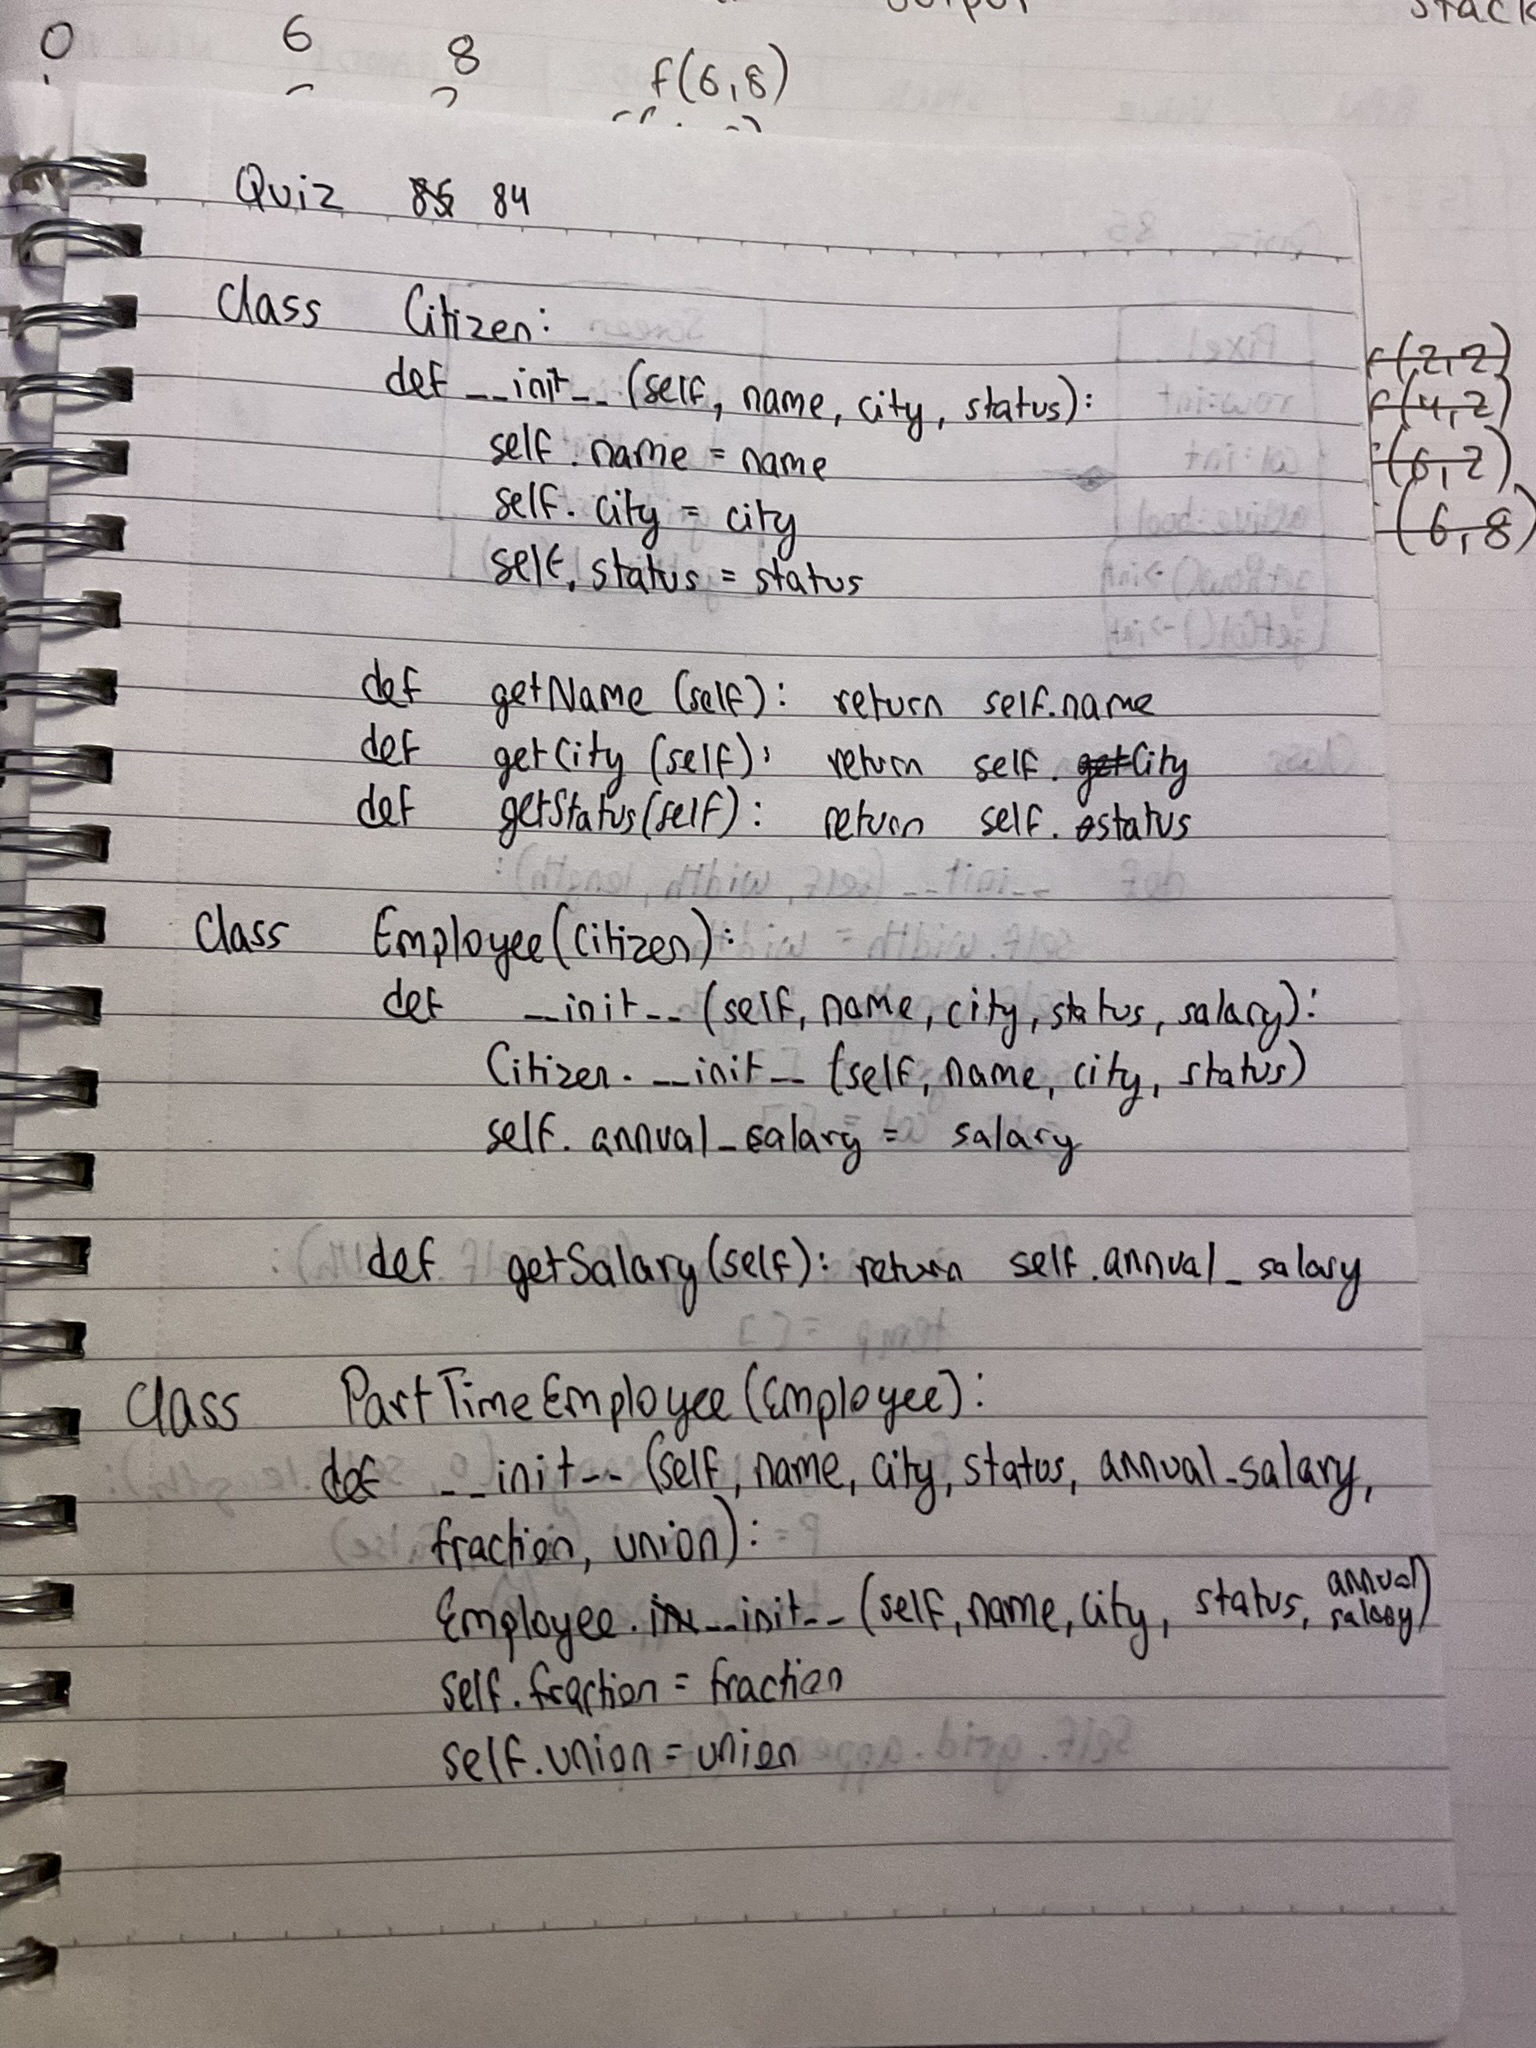 output
stack
0 6 8 f(6,8)
Quiz 84
class Citizen:
def __init__(self, name, city, status):
self.name = name
self.city = city
self.status = status
def getName(self): return self.name
def getCity(self): return self.City
def getStatus(self): return self.status
class Employee(Citizen):
def __init__(self, name, city, status, salary):
Citizen.__init__(self, name, city, status)
self.annual_salary = salary
def getSalary(self): return self.annual_salary
class PartTimeEmployee(Employee):
def __init__(self, name, city, status, annual_salary,
fraction, union):
Employee.__init__(self, name, city, status, annual salary)
self.fraction = fraction
self.union = union
(2,2)
(4,2)
(6,2)
(6,8)